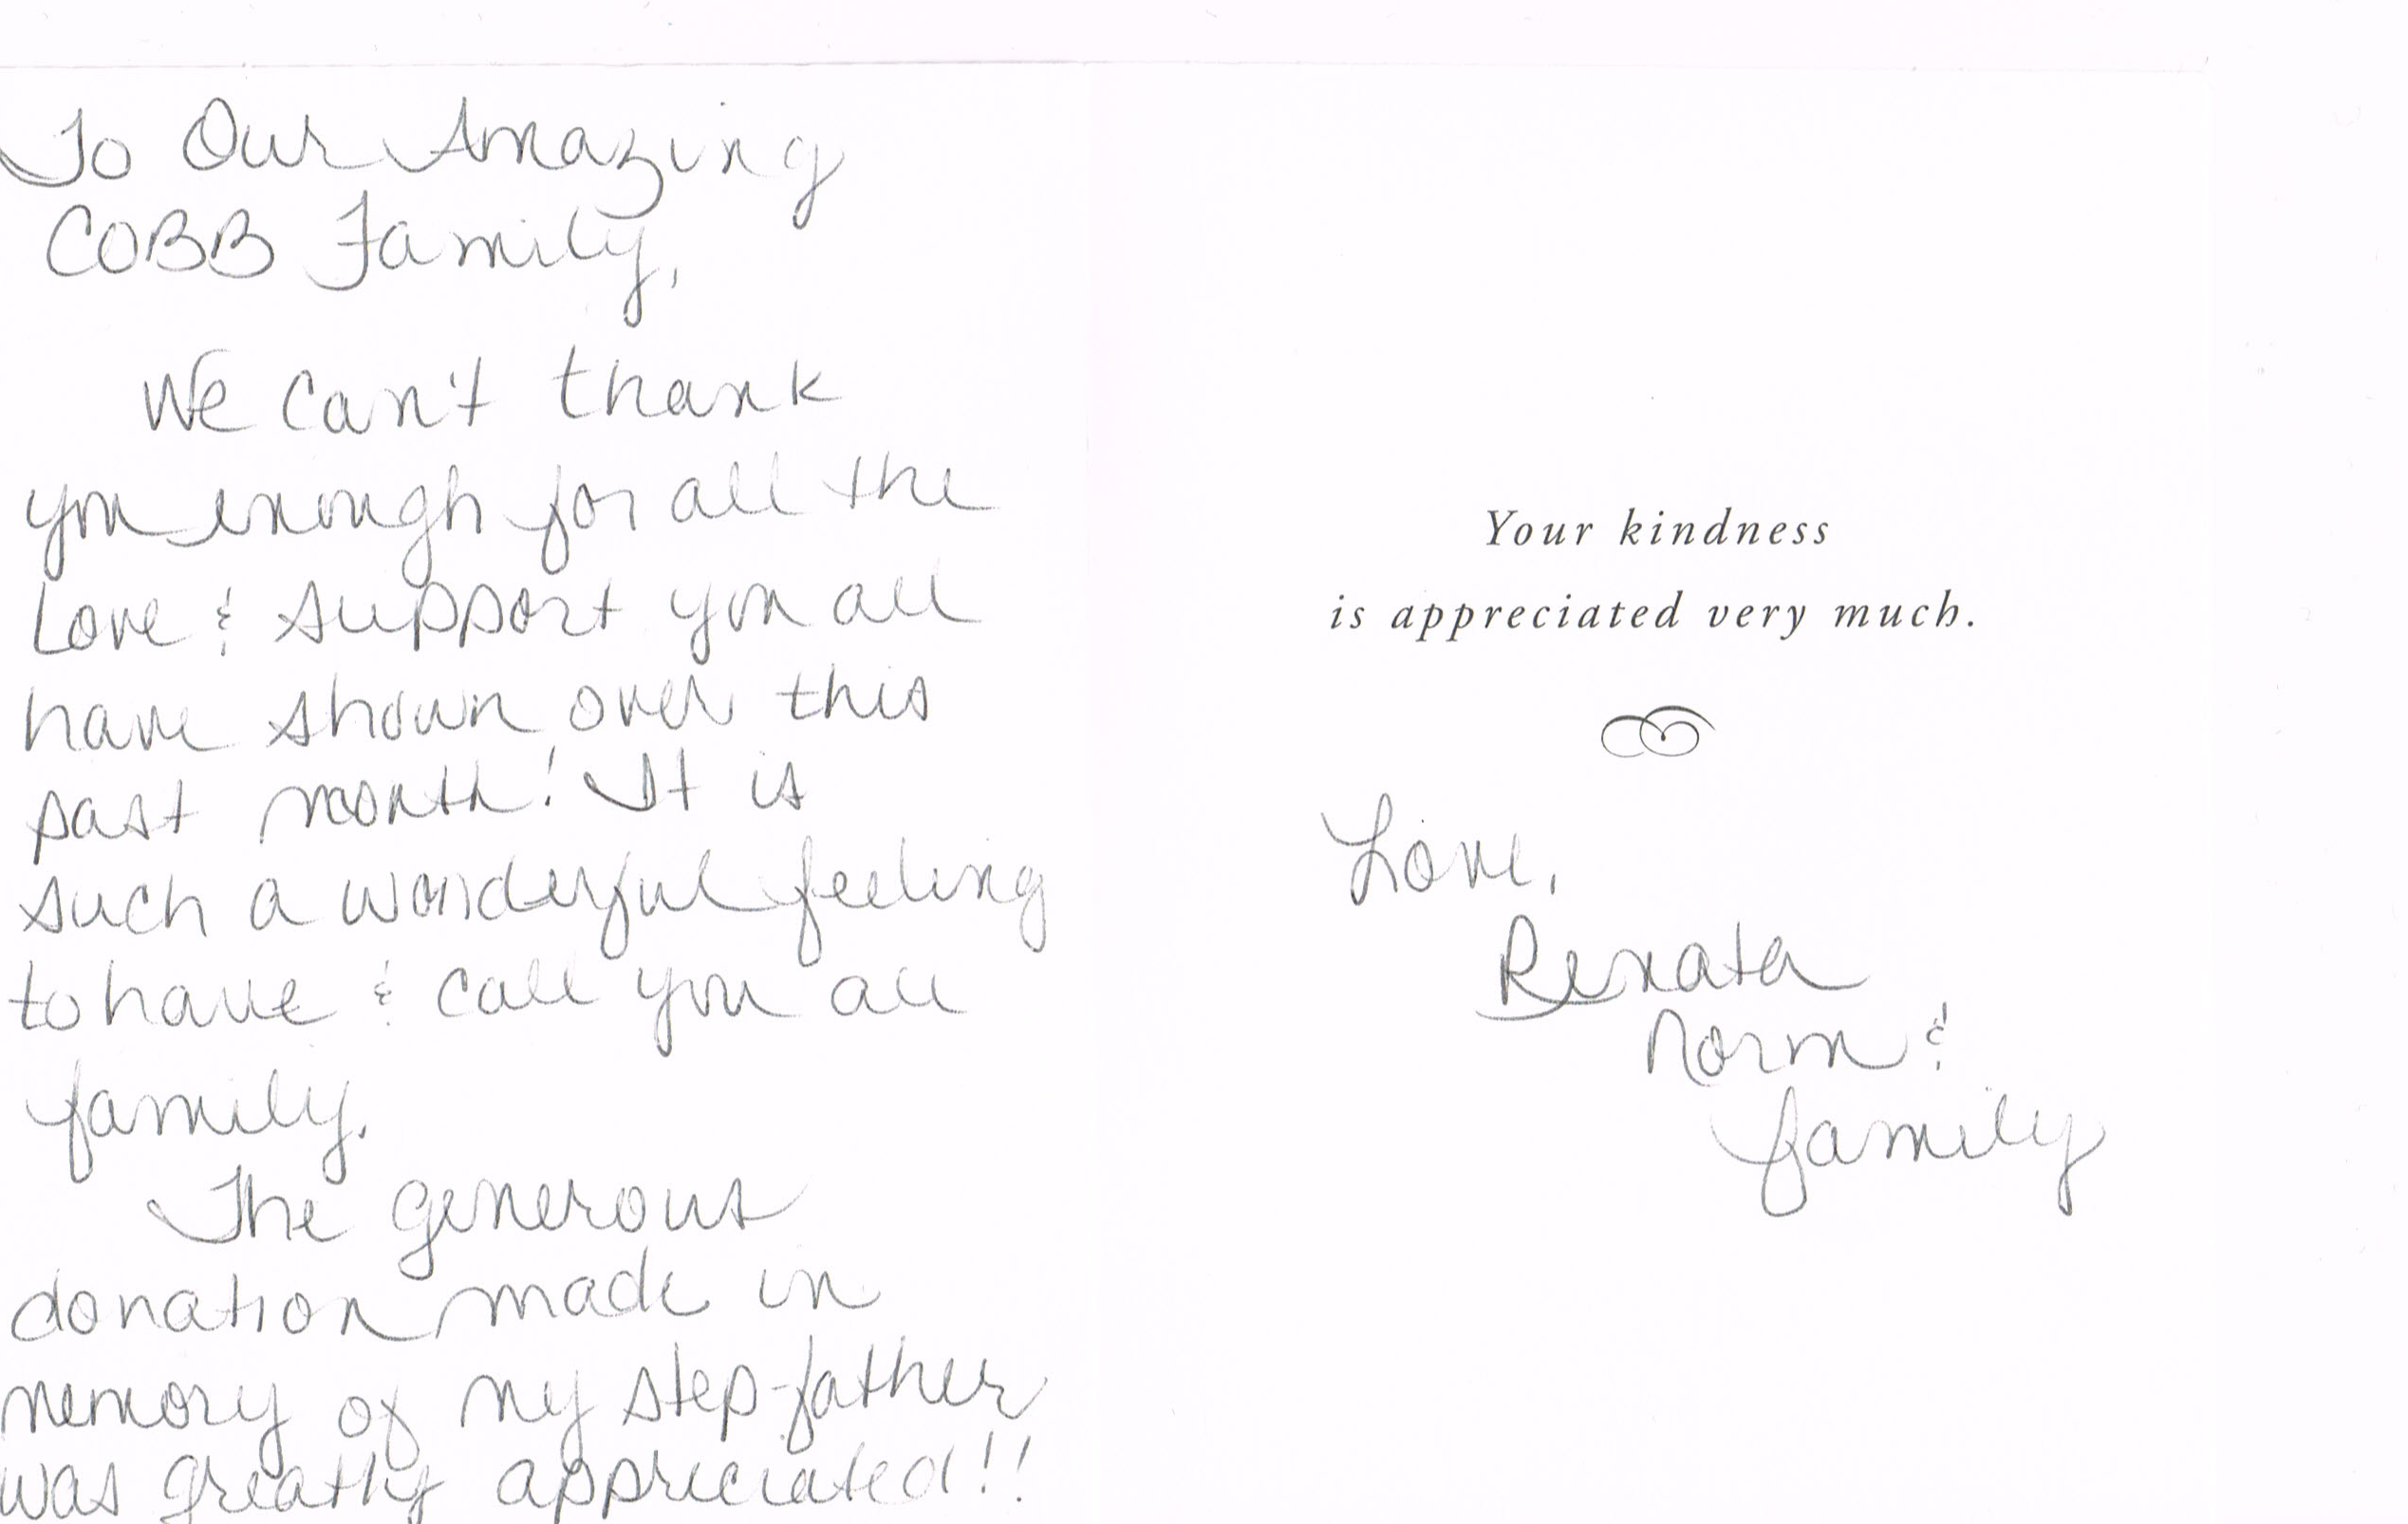 To Our Amazing
COBB Family,
We can't thank
you enough for all the
Love & support you all
have shown over this
past month! It is
such a wonderful feeling
to have & call you all
family.
The generous
donation made in
memory of my step-father
was greatly appreciated!!
Your kindness
is appreciated very much.
Love,
Renata
Norm &
family